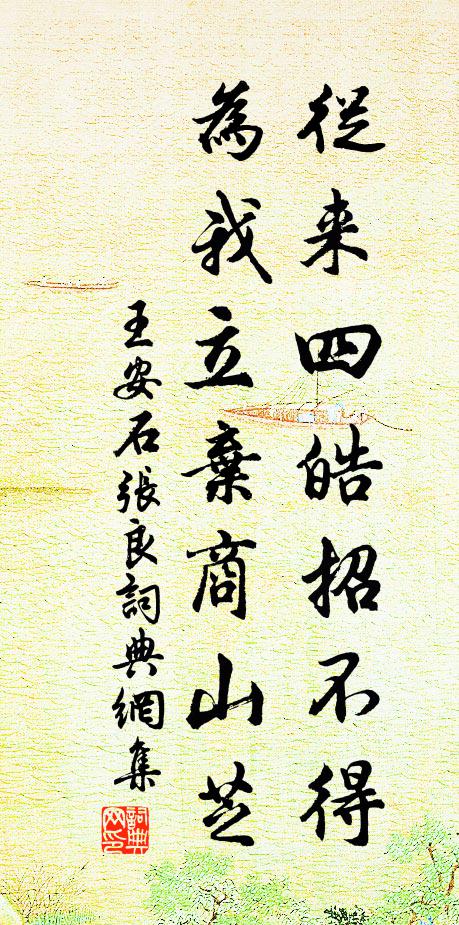 從来四皓招不得
為我立棄商山芝
王安石張良詞典網集
詞典网印